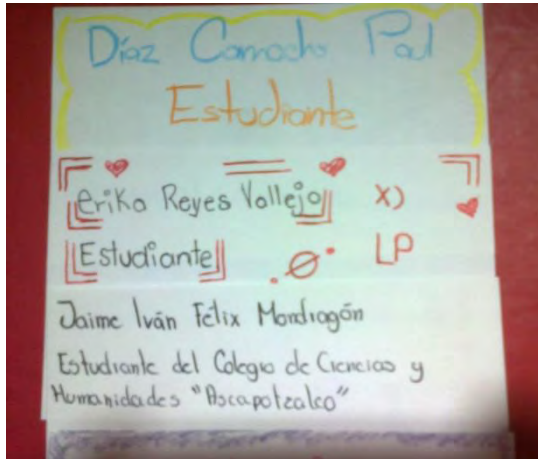 Díaz Camacho Pal
Estudiante
Erika Reyes Vallejo X)
Estudiante LP
Jaime Iván Félix Mondragón
Estudiante del Colegio de Ciencias y
Humanidades "Ascapotzalco"